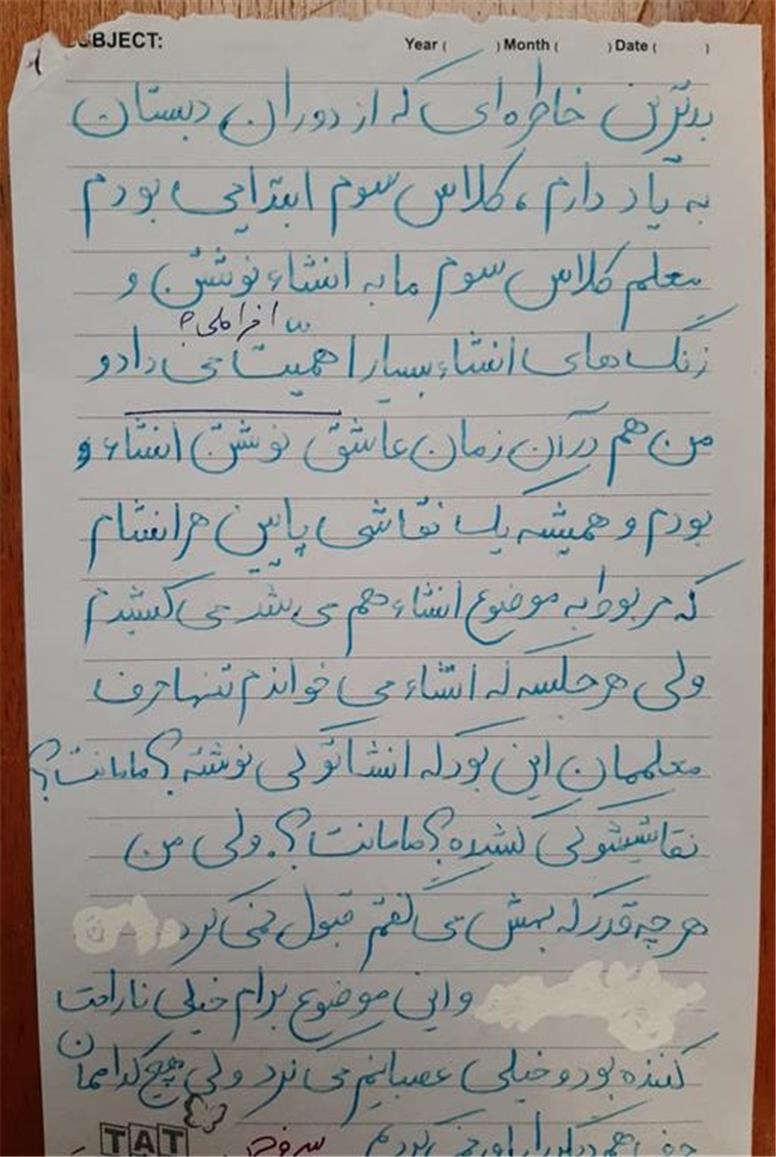 SUBJECT: Year ( ) Month ( ) Date ( )
بدترین خاطره‌ای که از دوران دبستان
به یاد دارم، کلاس سوم ابتدایی بودم
معلم کلاس سوم ما به انشاء نوشتن و
زنگ‌های انشاء بسیار اهمیت می‌داد و
من هم در آن زمان عاشق نوشتن انشاء و
بودم و همیشه یک نقاشی پایین هر انشام
که مربوط به موضوع انشاء هم می‌شد می‌کشیدم
ولی هر جلسه که انشاء می‌خواندم تنها حرف
معلممان این بود که انشاتو کی نوشته؟ مامانت؟
نقاشیشو کی کشیده؟ مامانت؟. ولی من
هر چه قدر که بهش می‌گفتم قبول نمی‌کرد
و این موضوع برام خیلی ناراحت
کننده بود و خیلی عصبانیم می‌کرد ولی هیچ کداممان
TAT